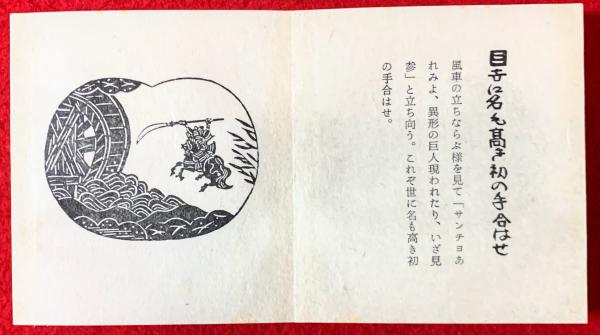 世に名も高き初の手合はせ
風車の立ちならぶ様を見て「サンチョあ
れみよ、異形の巨人現われたり、いざ見
参」と立ち向う。これぞ世に名も高き初
の手合はせ。